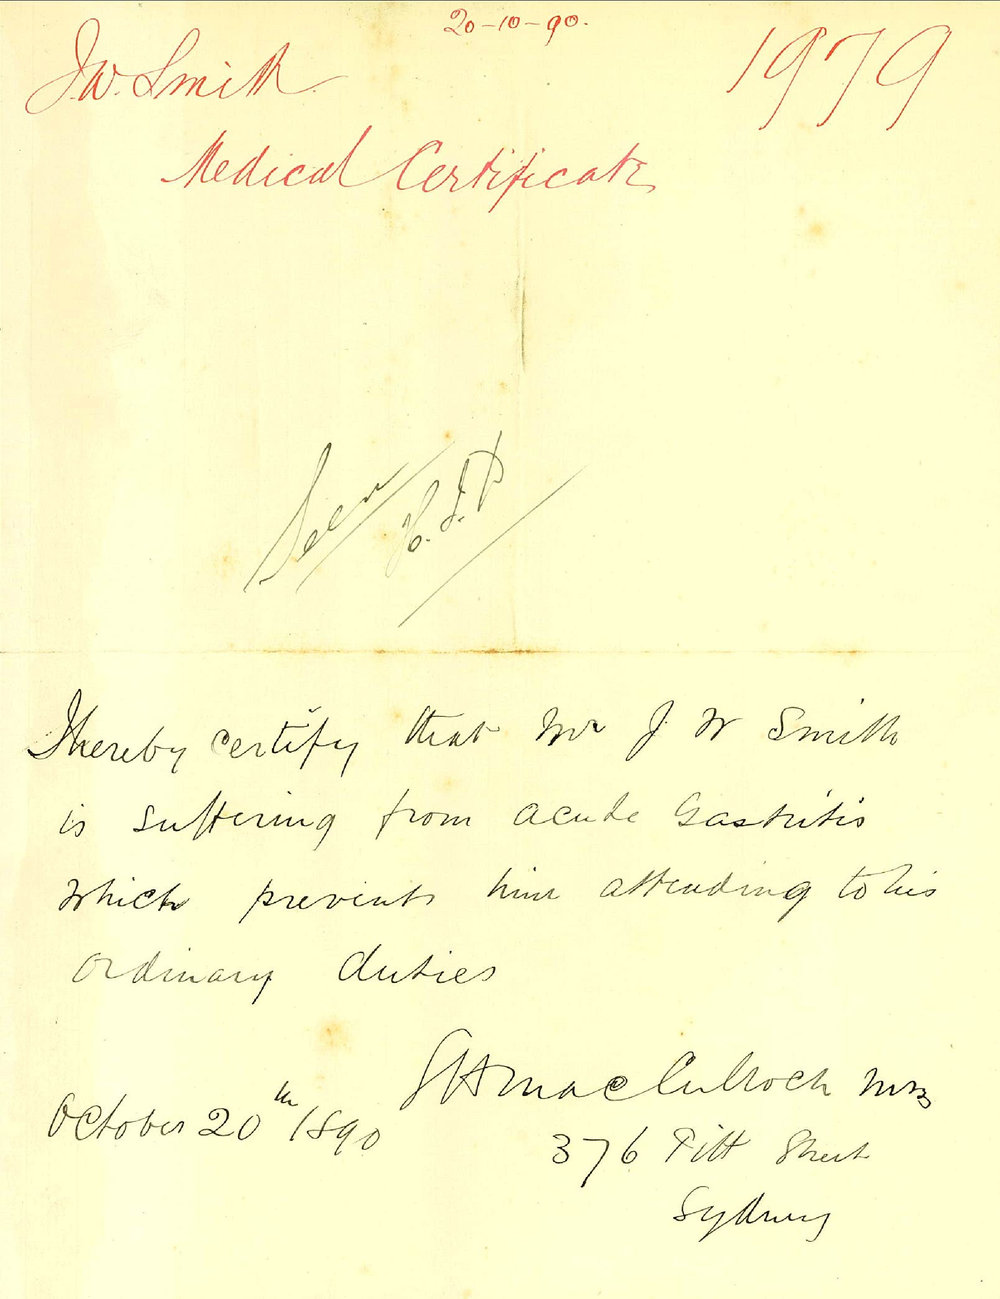 20-10-90.
J.W. Smith
1979
Medical Certificate
Seen
I hereby certify that Mr J W Smith
is suffering from acute Gastritis
which prevents him attending to his
ordinary duties
MacCulloch MB
October 20th 1890
376 Pitt Street
Sydney